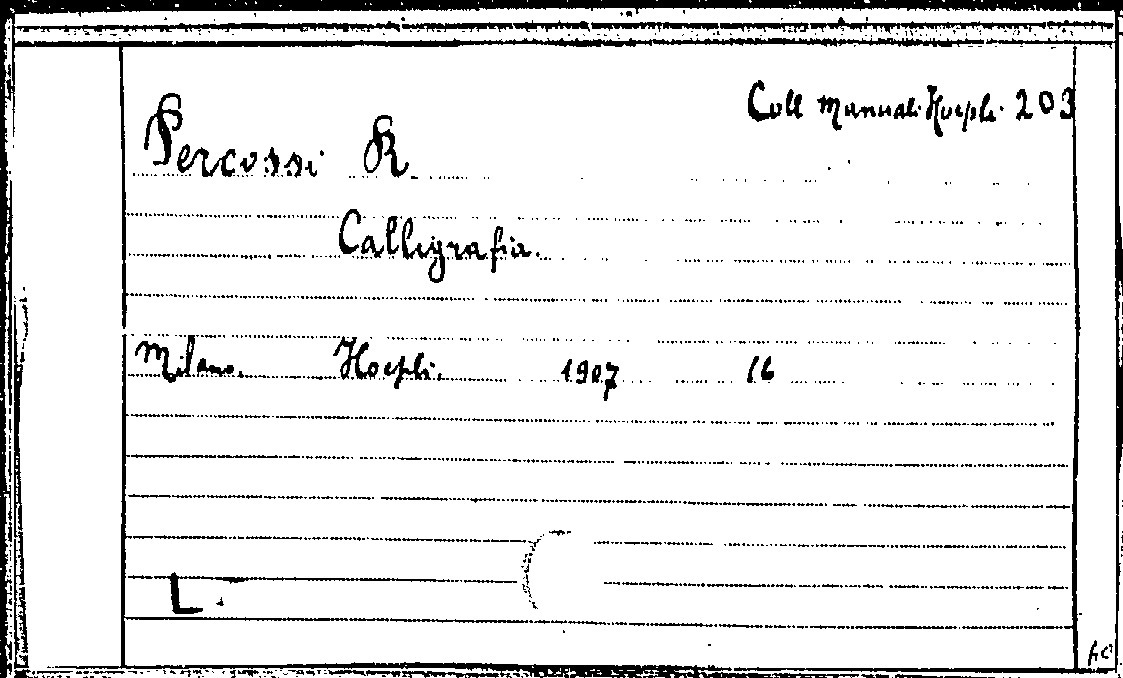 Coll Manuali Hoepli. 203
Percossi R.
Calligrafia.
Milano. Hoepli. 1907 16
L.